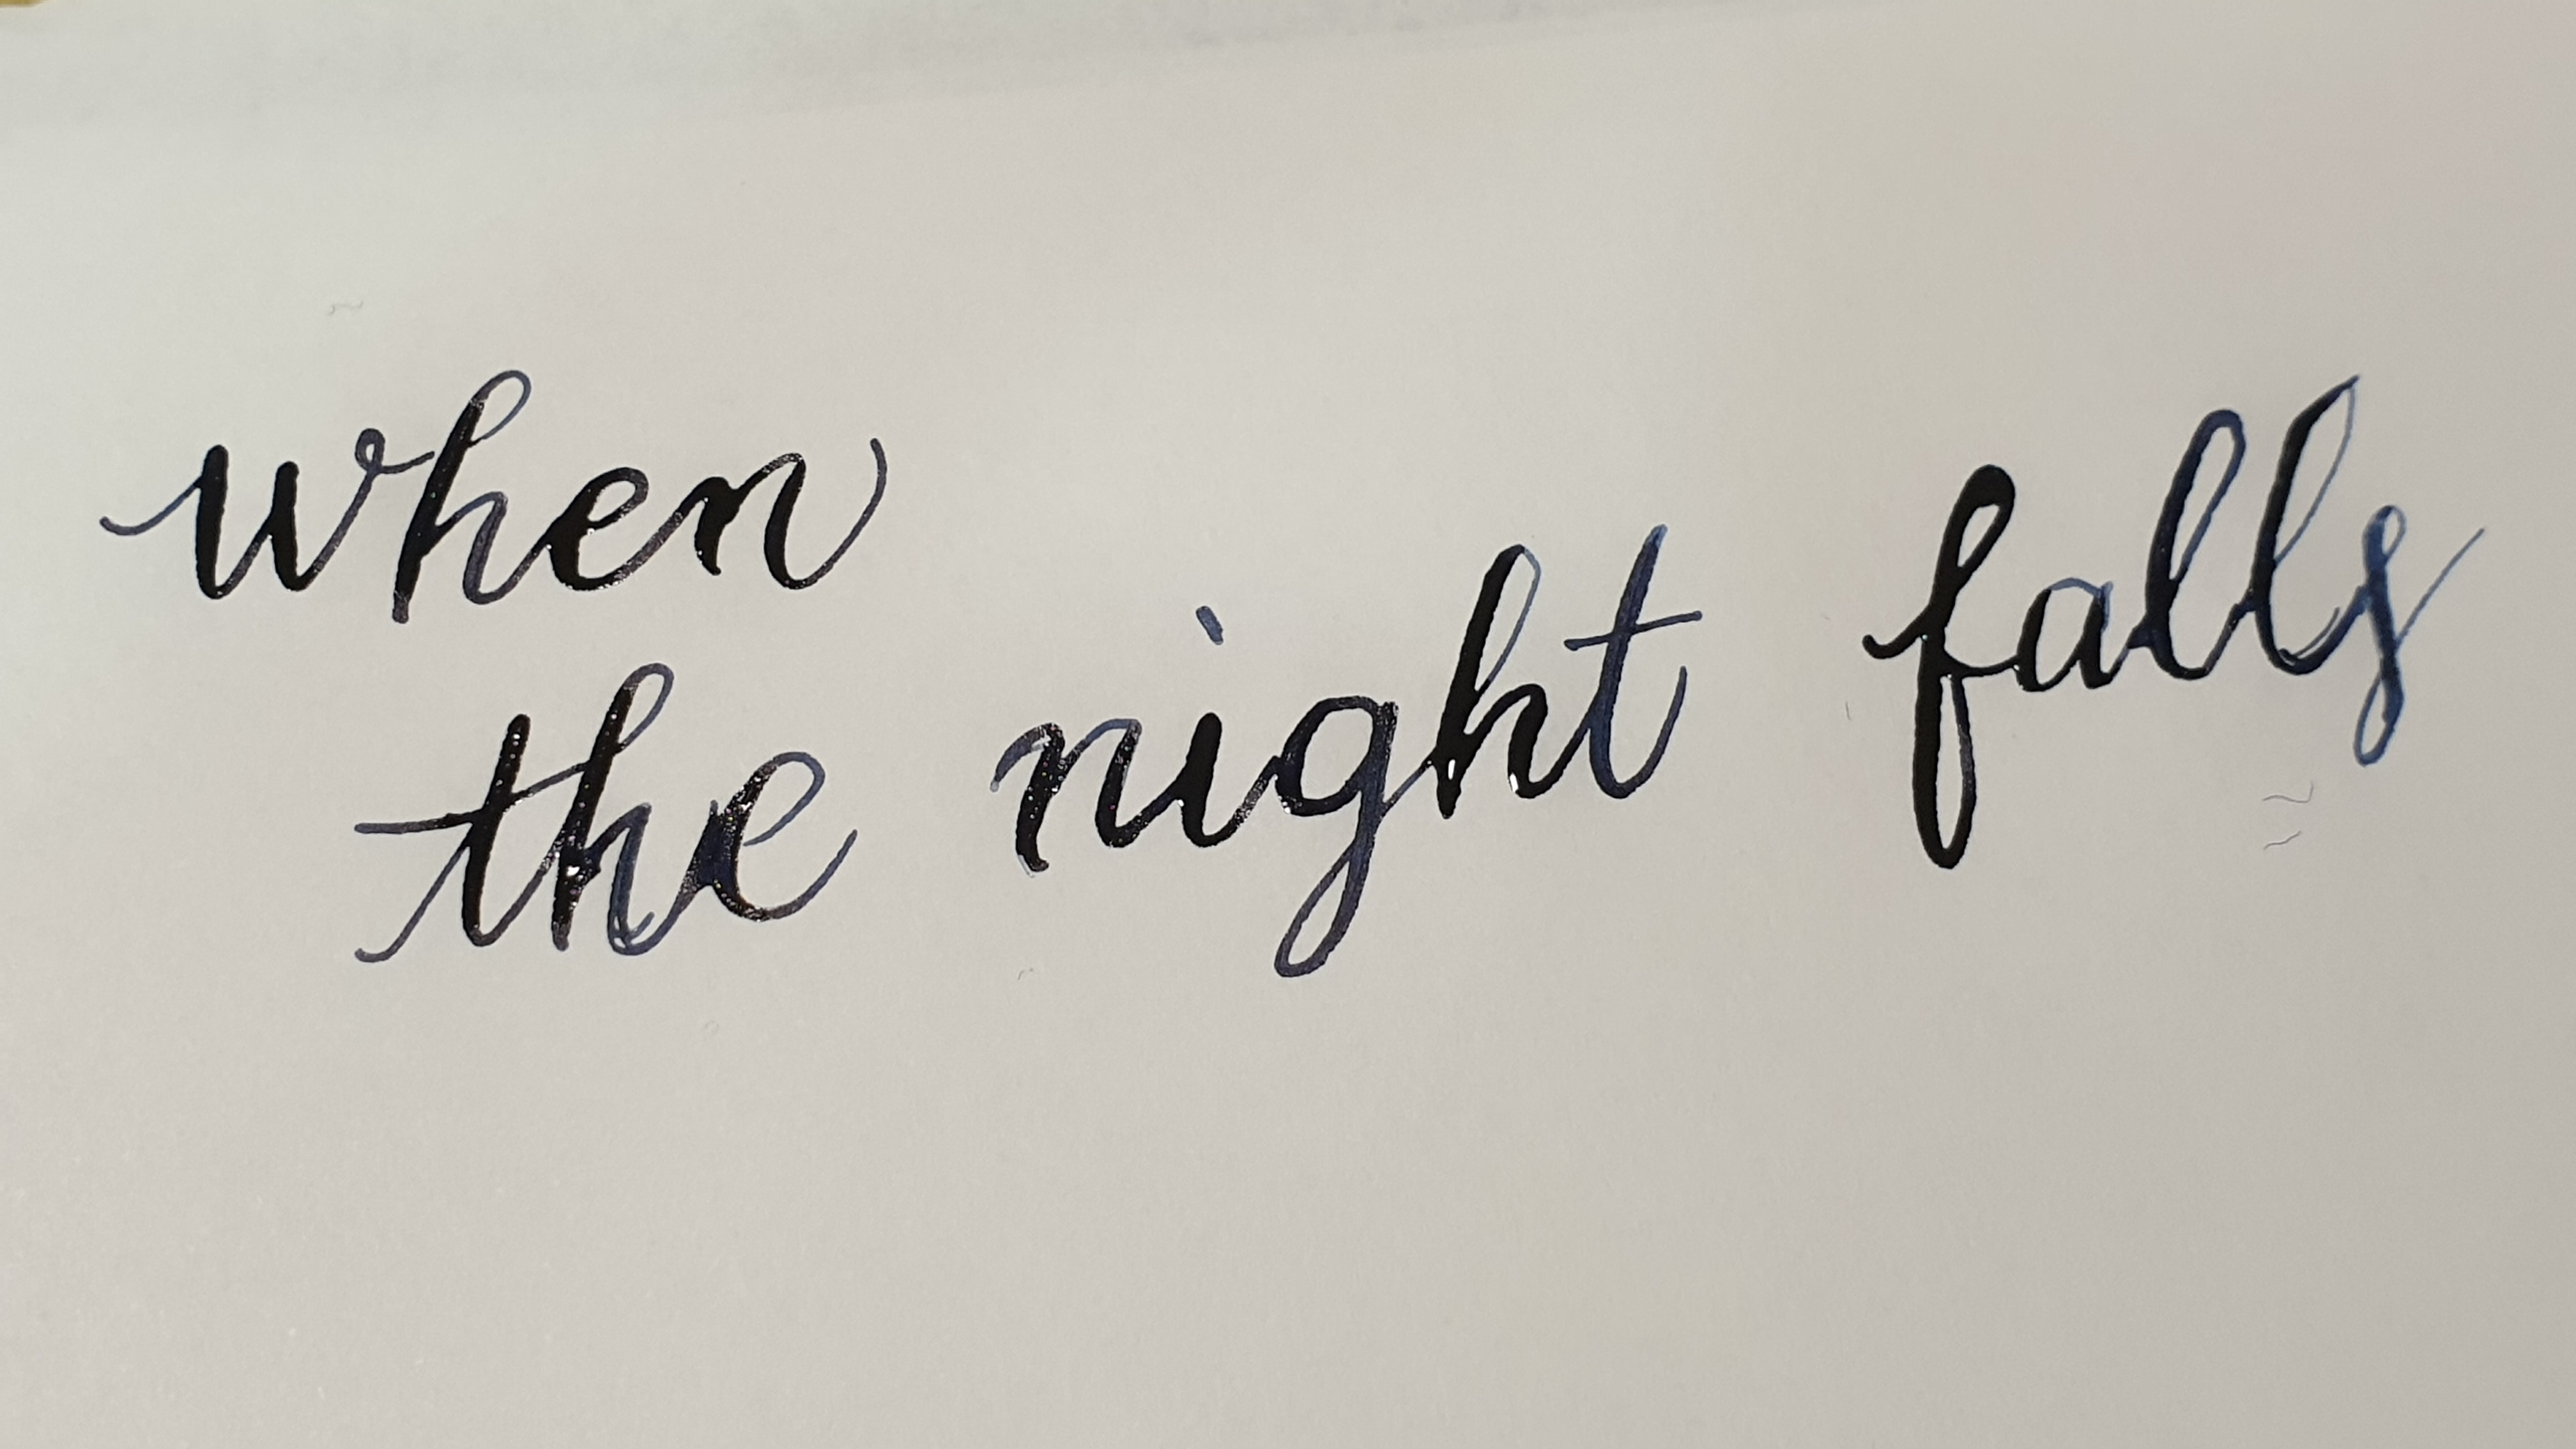 when
the night falls